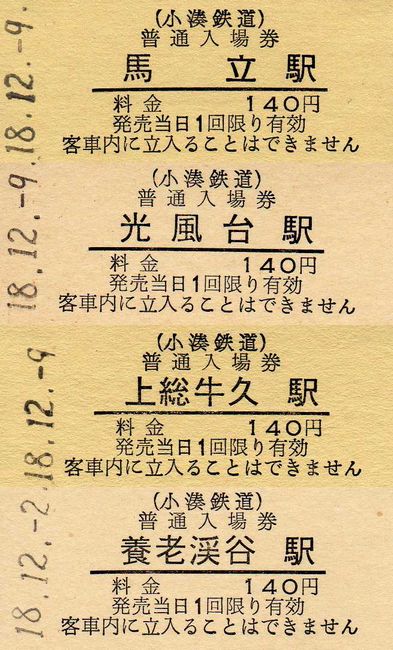 18.12.-9.
(小湊鉄道)
普通入場券
馬立駅
料金 140円
発売当日1回限り有効
客車内に立入ることはできません
18.12.-9.
(小湊鉄道)
普通入場券
光風台駅
料金 140円
発売当日1回限り有効
客車内に立入ることはできません
18.12.-9
(小湊鉄道)
普通入場券
上総牛久駅
料金 140円
発売当日1回限り有効
客車内に立入ることはできません
18.12.-2
(小湊鉄道)
普通入場券
養老渓谷駅
料金 140円
発売当日1回限り有効
客車内に立入ることはできません